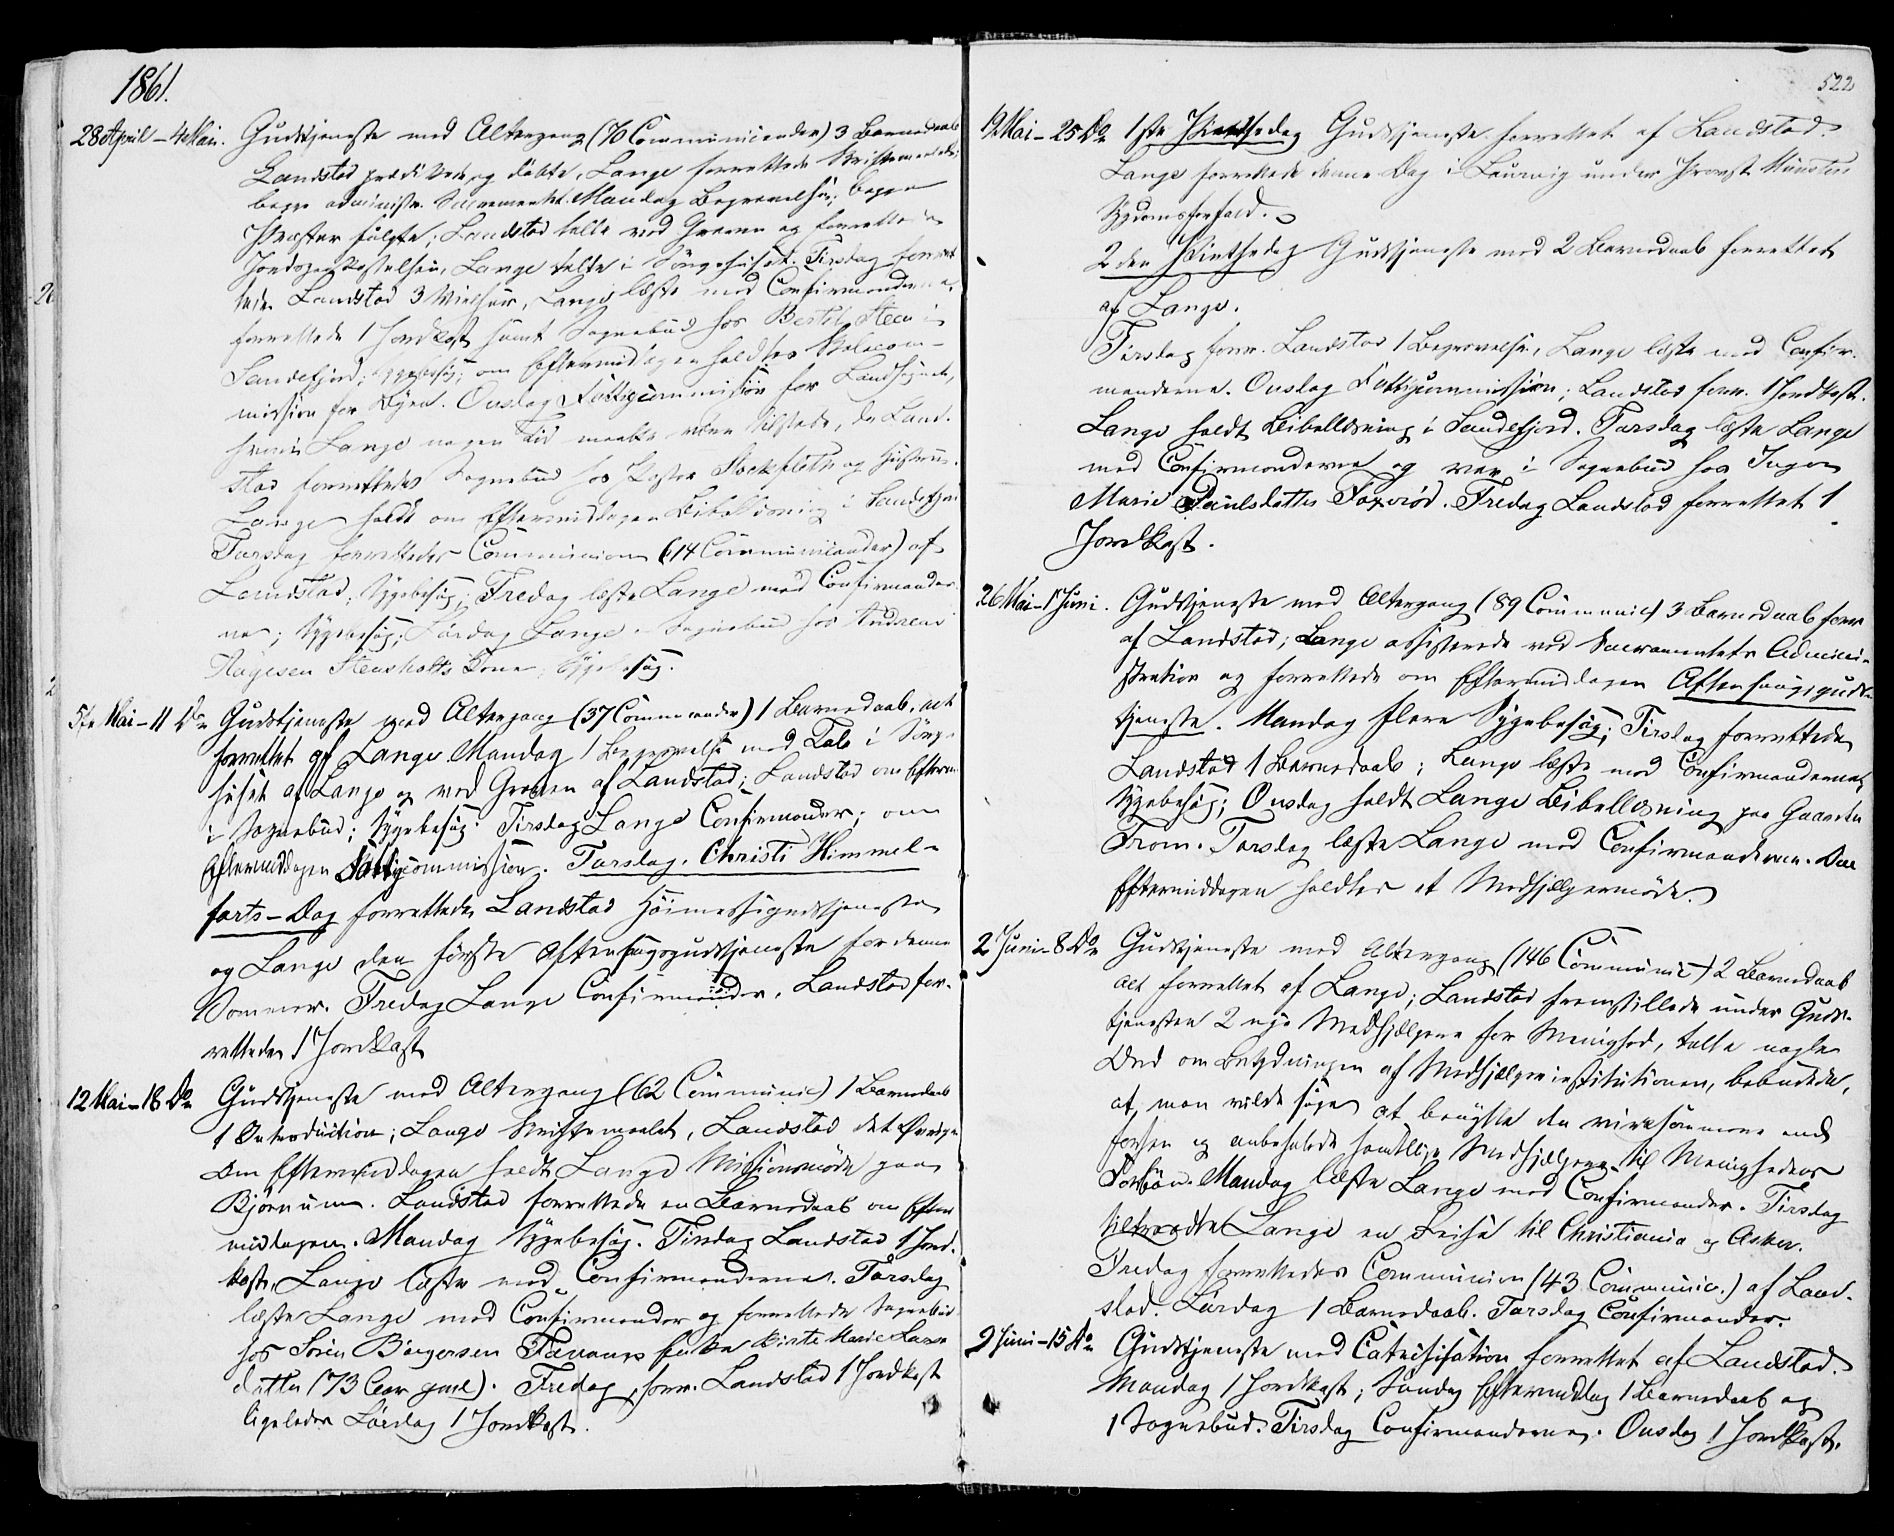 1861.
28 April – 4 Mai. Gudstjeneste med Altergang (70 Communicender) 3 Barnedaab
Landstad prædikede og döbte, Lange forrettede Skriftemaalet;
begge administr. Sacramentet. Mandag Begravelse; begge
Præster fulgte; Landstad talte ved Graven og forrettede
Jordspaakastelsen, Lange talte i Sörgehuset. Tirsdag forret
tede Landstad 3 Vielser, Lange læste med Confirmanderne,
forrettede 1 Jordkast samt Sognebud hos Bertel Steen i
Sandefjord; Sygebesög; om Eftermidagen holdtes Skolecom-
mission for Byen. Onsdag Fattigcommission for Landsognet,
hvori Lange nogen Tid maatte være tilstede, da Land-
stad forrettede Sognebud hos Pastor Stockfleth og Hustru.
Lange holdt om Eftermiddagen Bibellæsning i Sandefjord
Torsdag forrettedes Communion (14 Communicander) af
Landstad, Sygebesög; Fredag læste Lange med Confirmander
ne; Sygebesög; Lördag Lange i Sognebud hos Andreas
Aagesen Stensholts Kone, Sygebesög.
5te Mai – 11 Do Gudstjeneste med Altergang (37 Commucander) 1 Barnedaab, alt
forrettet af Lange Mandag 1 Begravelse med Tale i Sörge
huset af Lange og ved Graven af Landstad; Landstad om Efterm
i Sognebud; Sygebesög. Tirsdag Lange Confirmander; om
Eftermiddagen Fattigcommission. Torsdag. Christi Himmel-
farts-Dag forrettede Landstad Höimessegudstjeneste
og Lange den förste Aftensangsgudstjeneste for denne
Sommer. Fredag Lange Confirmander, Landstad for-
rettede 1 Jordkast
12 Mai – 18 Do Gudstjeneste med Altergang (62 Communic) 1 Barnedaab
1 Introduction; Lange Skriftemaalet, Landstad det Øvrige
Om Eftermiddagen holdt Lange Missionsmöde paa
Björnum. Landstad forrettede en Barnedaab om Efter
middagen. Mandag Sygebesög. Tirsdag Landstad 1 Jord-
kast, Lange læste med Confirmanderne. Torsdag
læste Lange med Confirmander og forrettede Sognebud
hos Sören Börgersen Enke Birte Marie Lars
datter (73 Aar gml). Fredag forr. Landstad 1 Jordkast
ligeledes Lördag 1 Jordkast.
522
19 Mai – 25 Do 1ste Pintsedag Gudstjeneste forrettet af Landstad.
Lange forrettede denne Dag i Laurvig under Provst Münsters
Sygdomsforfald.
2den Pintsedag Gudstjeneste med 2 Barnedaab forrettet
af Lange.
Tirsdag forr. Landstad 1 Begravelse, Lange læste med Confir-
manderne. Onsdag Fattigcommission; Landstad forr. 1 Jordkast.
Lange holdt Bibellæsning i Sandefjord. Torsdag læste Lange
med Confirmanderne og var i Sognebud hos Inger
Marie Paulsdatter Foxerød. Fredag Landstad forrettet 1
Jordkast.
26 Mai – 1 Juni. Gudstjeneste med Altergang (89 Communic) 3 Barnedaab forr.
af Landstad; Lange assisterede ved Sacramentets Admini-
stration og forrettede om Eftermiddagen Aftensangsgudst-
tjeneste. Mandag flere Sygebesög; Tirsdag forrettede
Landstad 1 Barnedaab; Lange læste med Confirmanderne,
Sygebesög; Onsdag holdt Lange Bibellæsning paa Gaarden
From. Torsdag læste Lange med Confirmanderne. Om
Eftermiddagen holdtes et Medhjælpermöde.
2 Juni – 8 Do Gudstjeneste med Altergang (146 Communic) 2 Barnedaab
alt forrettet af Lange; Landstad fremstillede under Guds-
tjenesten 2 nye Medhjælpere for Menighed, talte nogle
Ord om Betydningen af Medhjælperinstitutionen, bebudede,
at man vilde söge at benytte den virksommere end
forhen og anbefalede samtlige Medhjælpere til Menighedens
Forbön. Mandag læste Lange med Confirmander. Tirsdag
tiltraadte Lange en Reise til Christiania og Asker.
Fredag forrettedes Communion (43 Communic.) af Land-
stad. Lördag 1 Barnedaab. Torsdag Confirmander.
9 Juni – 15 Do Gudstjeneste med Catechisation forrettet af Landstad.
Mandag 1 Jordkast; Söndag Eftermiddag 1 Barnedaab og
1 Sognebud. Tirsdag Confirmanderne. Onsdag 1 Jordkast.